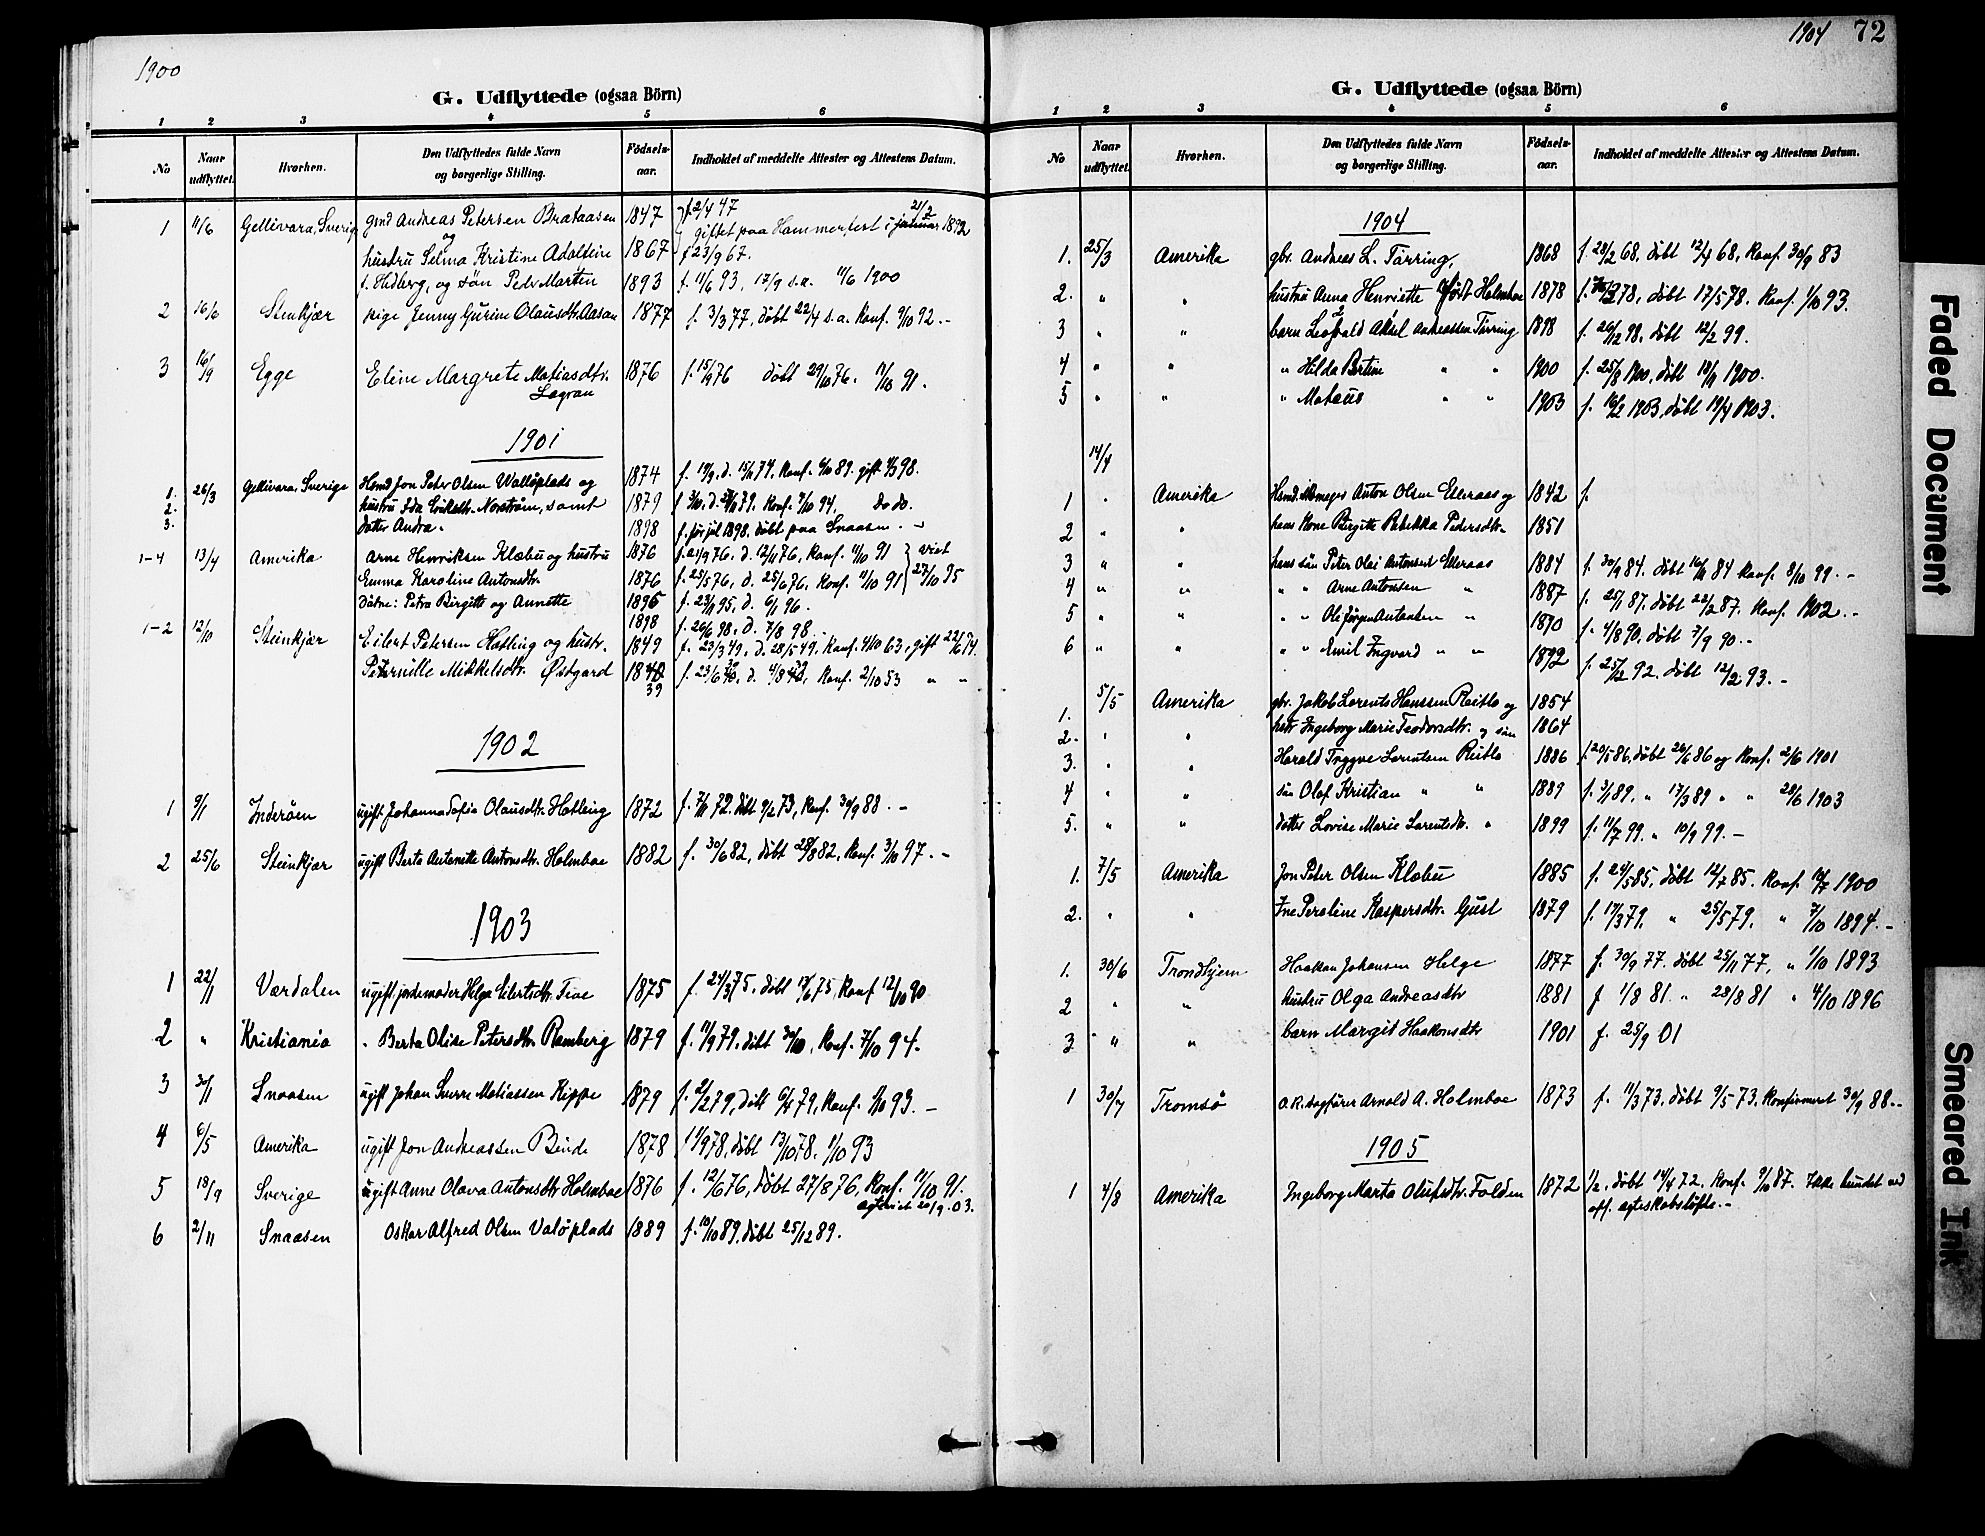 1900
G. Udflyttede (ogsaa Börn)
1 2 3 4 5 6
No Naar udflyttet. Hvorhen. Den Udflyttedes fulde Navn og borgerlige Stilling. Fødselsaar. Indholdet af meddelte Attester og Attestens Datum.
1 11/6 Gellivara, Sverig gmd Andreas Petersen Brataasen 1847 f. 2/4 47
og giftet paa Hammerfest i januar 21/2 1892
hustru Selma Kristine Adoltine 1867 f 23/9 67.
f. Hedberg, og søn Peder Marten 1893 f. 11/6 93, 17/9 s.a. 11/6 1900
2 16/6 Stenkjær pige Jenny Gurine Olausdtr. Aasan 1877 f. 3/3 77, døbt 22/4 s.a. Konf. 9/10 92.-
3 16/9 Egge Eline Margrete Matiasdtr. 1876 f. 15/9 76 døbt 29/10 76. 11/10 91.
1901
1. 26/3 Gellivara, Sverige Hsmd Jon Peter Olsen Valløplads og 1874 f. 19/9, d. 15/11 74, Konf. 6/10 89. gift 4/3 98.
2. hustru Ida Eriksdtr. Norstrøm, samt 1879 Konf. 7/10 94. do do.
3. datter Andra. 1898 f. før jul 1898. døbt paa Snaasen.
1-4 13/4 Amerika Arne Henriksen Klæbu og hustru 1876 f. 21/9 76, d. 12/11 76, Konf. 11/10 91 viet
Emma Karoline Antonsdtr. 1876 f. 25/5 76, d. 25/6 76, Konf. 11/10 91 27/10 95
døtre: Petra Birgitte og Annette 1895 f. 23/11 95, d. 6/1 96.
1898 f. 26/6 98, d. 7/8 98
1-2 12/10 Steinkjær Eilert Petersen Hatling og hustr. 1849 f. 23/3 49, d. 28/5 49. Konf. 4/10 63, gift 22/6 74.
Petersille Mikkelsdtr. Østgard 1840 39 f. 23/6 40, d. 4/8 40, Konf. 2/10 53 " "
1902
1 9/1 Inderøen ugift Johanna Sofia Olausdtr. Hatling 1872 f. 7/11 72. døbt 9/2 73, Konf. 30/9 88.-
2 25/6 Steinkjær ugift Berta Antonette Antonsdtr. Holmboe 1882 f. 30/6 82, døbt 28/8 82, Konf. 3/10 97.-
1903
1 22/1 Værdalen ugift jordemoder Helga Eilertsdtr. Five 1875 f. 24/3 75. døbt 17/6 75, Konf 12/10 90
2 " Kristiania " Berta Olise Petersdtr. Ramberg 1879 f. 11/9 79, døbt 30/10, Konf. 7/10 94.
3 30/1 Snaasen ugift Johan Sverre Matiassen Kippe 1879 f. 2/2 79, døbt 6/4 79, Konf. 1/10 93.-
4 6/5 Amerika ugift Jon Andreassen Binde 1878 11/9 78, døbt 13/10 78. 1/10 93
5 18/9 Sverige ugift Anne Olava Antonsdtr Holmboe 1876 f. 12/6 76, døbt 27/8 76, Konf. 11/10 91.
6 2/11 Snaasen Oskar Alfred Olsen Valøplads 1889 f. 10/10 89. døbt 25/12 89.
1904 72
G. Udflyttede (ogsaa Börn)
1 2 3 4 5 6
No Naar udflyttet. Hvorhen. Den Udflyttedes fulde Navn og borgerlige Stilling. Fødselsaar. Indholdet af meddelte Attester og Attestens Datum.
1904
1. 25/3 Amerika gbr. Andreas L. Tørring, 1868 f. 28/2 68, døbt 12/4 68, Konf. 30/9 83
2. " " hustru Anna Henriette født Holmboe 1878 døbt 17/5 78. Konf. 1/10 93.
3 " " barn Leopold Aksel Andreassen Tørring 1898 f. 26/12 98. døbt 12/2 99.
4 " " " Hilda Bertine " " 1900 f. 25/8 1900, døbt 18/11 1900.
5 " " " Mateus " " 1903 f. 16/2 1903, døbt 19/4 1903.
14/4
1 " Amerika Anton Olsen Elleraas og 1842 f.
2 " " hans Kone Birgitte Rebekka Pedersdtr. 1851
3 " " hans søn Peter Olai Antonsen Elleraas 1884 f. 30/9 84. døbt 16/11 84 Konf. 8/10 99.-
4 " " " " Arne Antonsen " 1887 f. 25/1 87. døbt 22/2 87. Konf. 1902.-
5 " " " " Ole Jørgen Antonsen " 1890 f. 4/8 90, døbt 7/9 90.-
6 " " " " Emil Ingvard " " 1892 f. 25/12 92. døbt 12/2 93.-
1. 5/5 Amerika gbr. Jakob Lorents Hanssen Reitlo og 1854
2. " " hstr Ingeborg Marie Teodorsdtr. og søn 1864
3. " " Harald Tryggve Lorentsen Reitlo 1886 f. 20/5 86. døbt 20/6 86 og Konf. 2/6 1901
4 " " søn Olaf Kristian " " 1889 f. 3/1 89, " 17/3 89 " " 28/6 1903
5. " " datter Lovise Marie Lorentsdtr. " 1899 f. 11/7 99. " 10/9 99.-
1. 7/5 Amerika Jon Peter Olsen Klæbu 1885 f. 24/5 85. døbt 12/7 85. Konf. 1900
2. " " Ine Peroline Kaspersdtr. Gust 1879 f. 17/3 79. " 25/5 79. " 7/10 1894.-
1. 30/6 Trondhjem Haakon Johansen Helge 1877 f. 30/9 77. døbt 25/11 77, " 1/10 1893
2 " " hustru Olga Andreasdtr 1881 f 1/8 81. " 28/8 81 " 4/10 1896
3 " " barn Margit Haakonsdtr 1901 f. 25/9 01
1 30/7 Tromsø O.R.sagfører Arnold A. Holmboe 1873 f. 11/3 73. døbt 9/5 73. Konfirmeret 30/9 88.-
1905
1 4/8 Amerika Ingeborg Marta Olufsdtr. Folden 1872 1/2. døbt 14/4 72. Konf. 9/10 87. Ikke bundet ved
off. egteskabsløfte.-
Faded Document
Smeared Ink